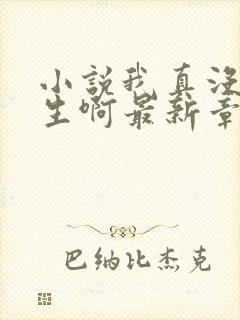 小説我真没
生啊最新章
巴纳比杰克